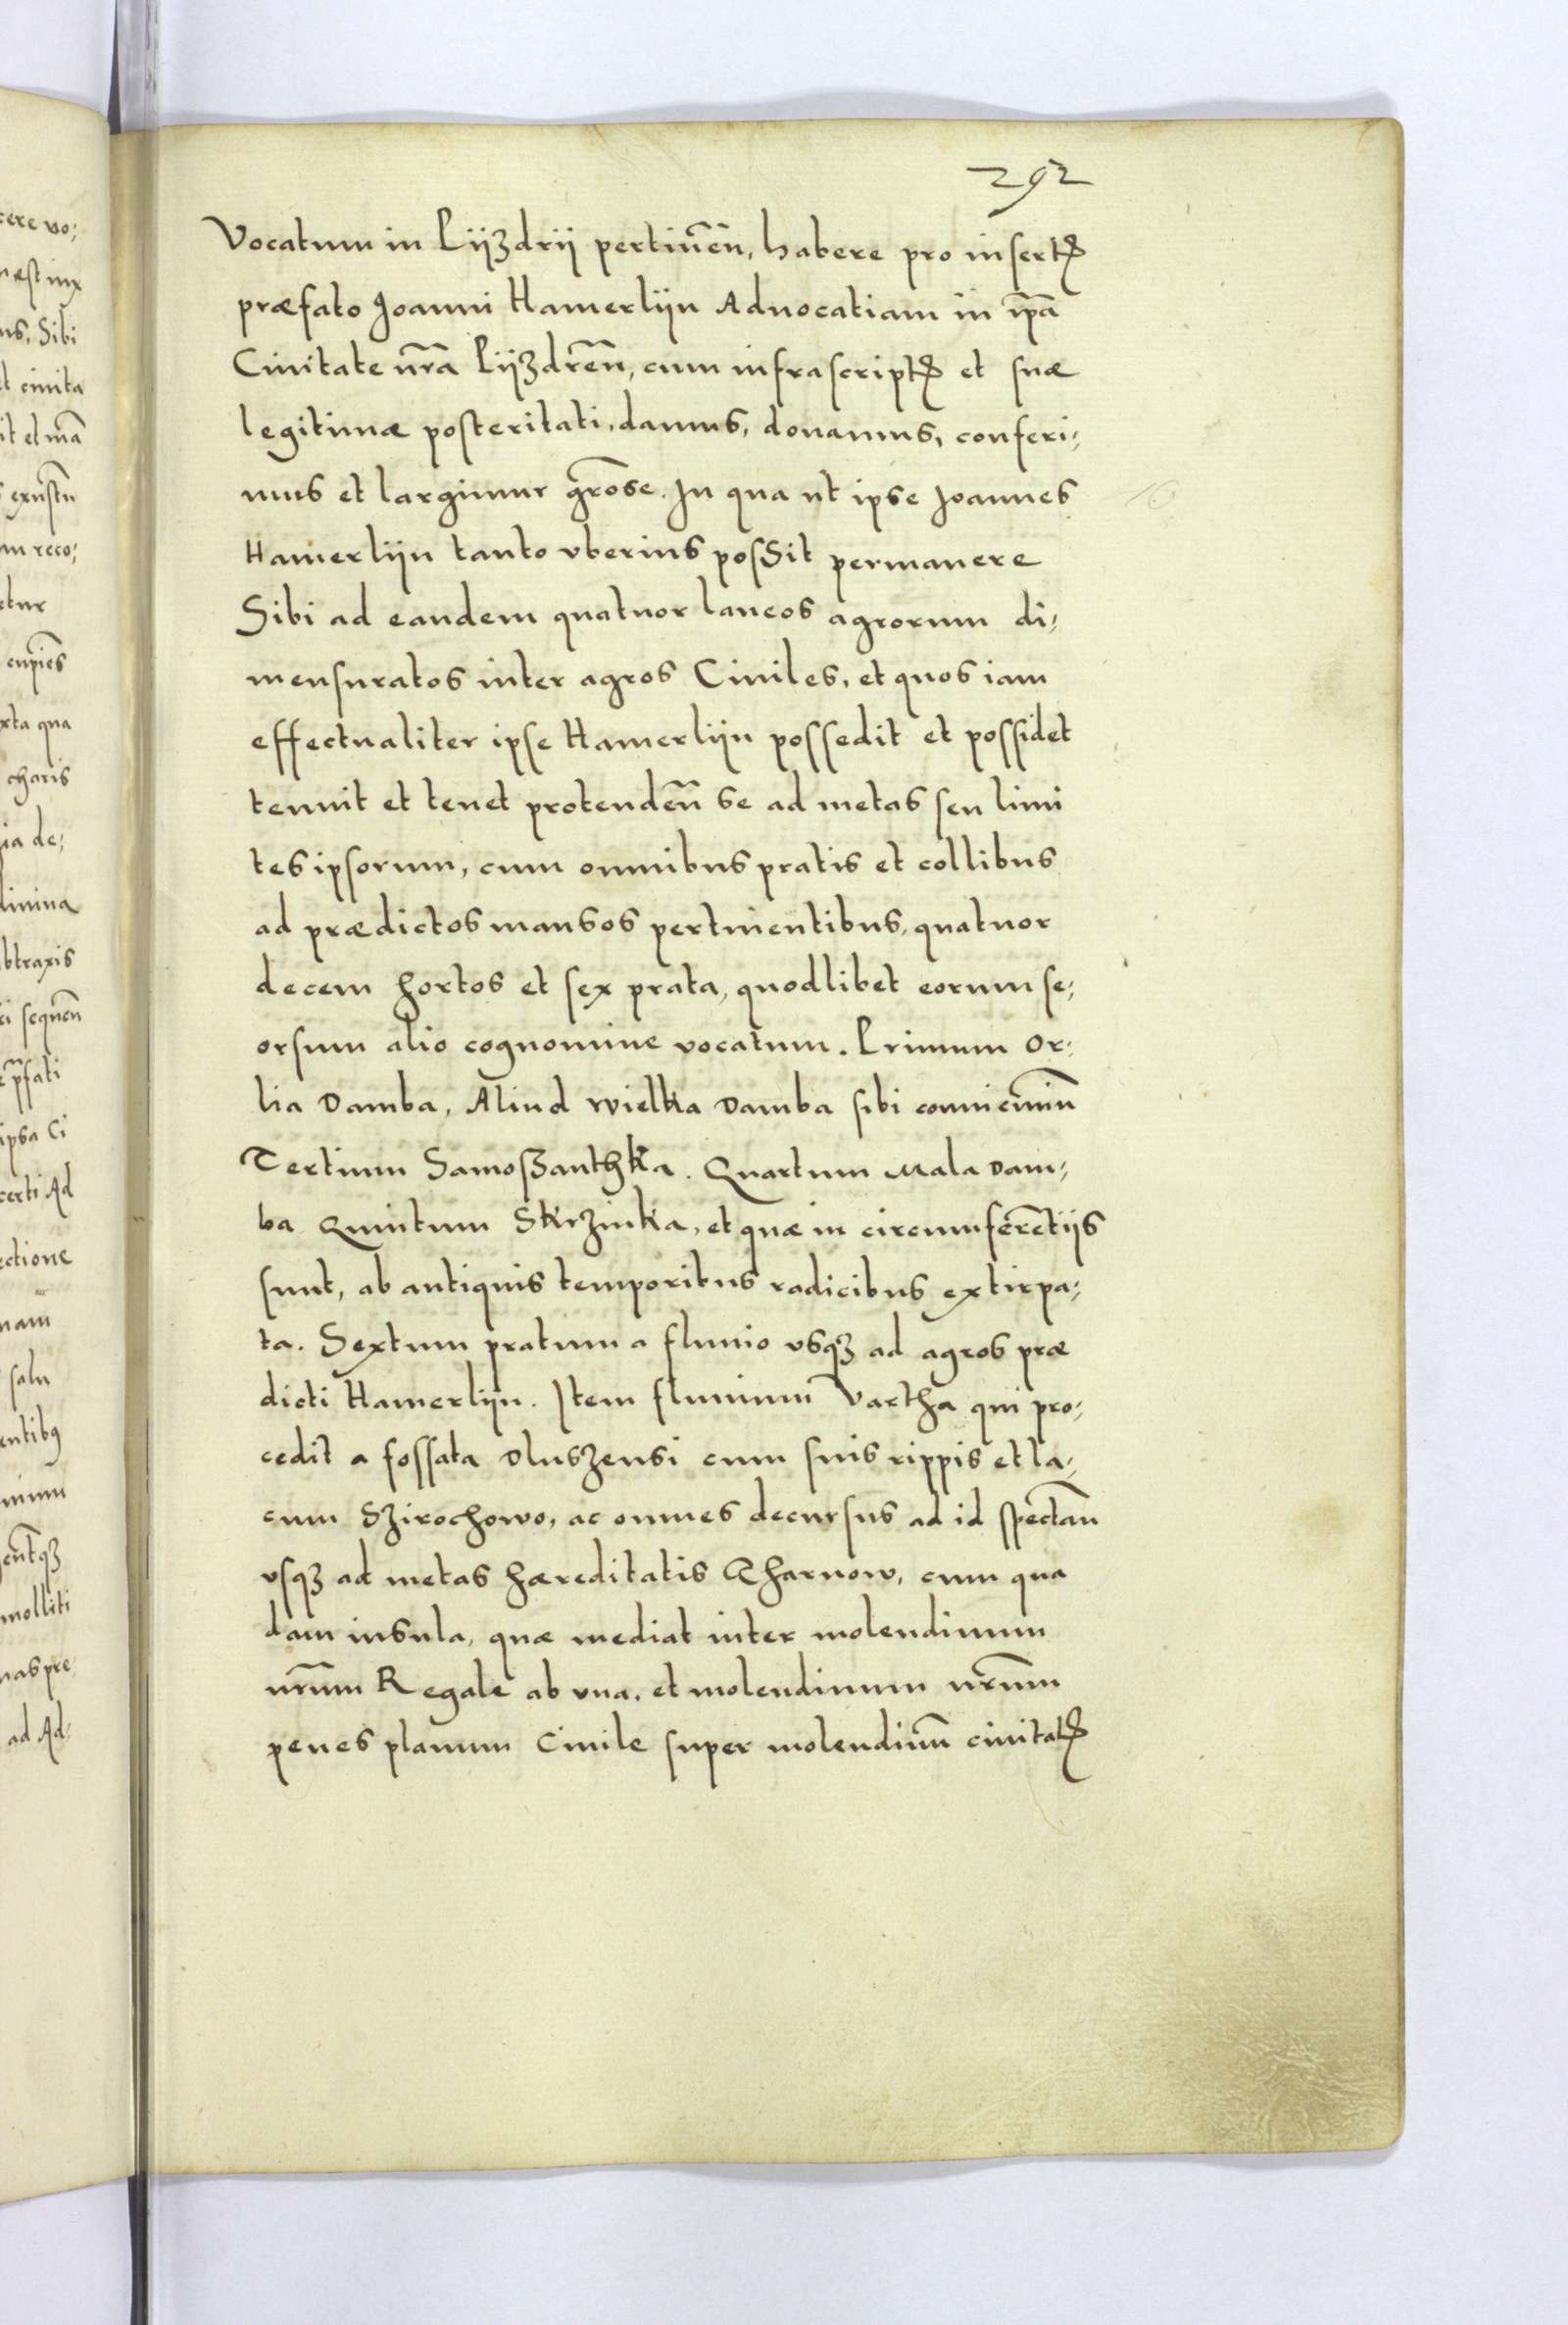 292
Vocatum in Pijzdrij pertineñ, habere pro insertꝭ
præfato Joanni Hamerlijn Aduocatiam in ip̃a
Ciuitate nr̃a Pijzdreñ, cum infrascriptꝭ et suæ
legitimæ posteritati, damus, donamus, conferi;
mus et largimur gr̃ose. In qua ut ipse Joannes
Hamerlijn tanto vberius possit permanere
Sibi ad eandem quatuor laneos agrorum di;
mensuratos inter agros Ciuiles, et quos iam
effectualiter ipse Hamerlijn possedit et possidet
tenuit et tenet protendeñ se ad metas seu limi
tes ipsorum, cum omnibus pratis et collibus
ad prædictos mansos pertinentibus, quatuor
decem hortos et sex prata, quodlibet eorum se;
orsum alio cognomine vocatum. Primum Or;
lia Damba, Aliud wielka Damba sibi conuicinũ
Tertium Samoßanthka. Quartum Mala Dam;
ba Quintum Skrzinka, et quæ in circumferẽtijs
sunt, ab antiquis temporibus radicibus extirpa;
ta. Sextum pratum a fluuio vsqꝫ ad agros præ
dicti Hamerlijn. Item fluuium Vartha qui pro;
cedit a fossata Dluszensi cum suis rippis et la;
cum Szirochowo, ac omnes decursus ad id spectañ
vsqꝫ ad metas hæreditatis Tharnow, cum qua
dam insula, quæ mediat inter molendinum
nr̃um Regale ab vna, et molendinum nr̃um
penes planum Ciuile super molendinũ ciuitatꝭ
cere vo;
næst iux
us, Sibi
et ciuita
it et mã
exñstñ
um reco;
etur
cupiẽs
xta qua
charis
ia de;
limina
btraxis
ei sequeñ
p̃fati
ipsa Ci
certi Ad
ectione
nam
salu
entibꝰ
inium
entqꝫ
molliti
nas pre;
ad Ad;